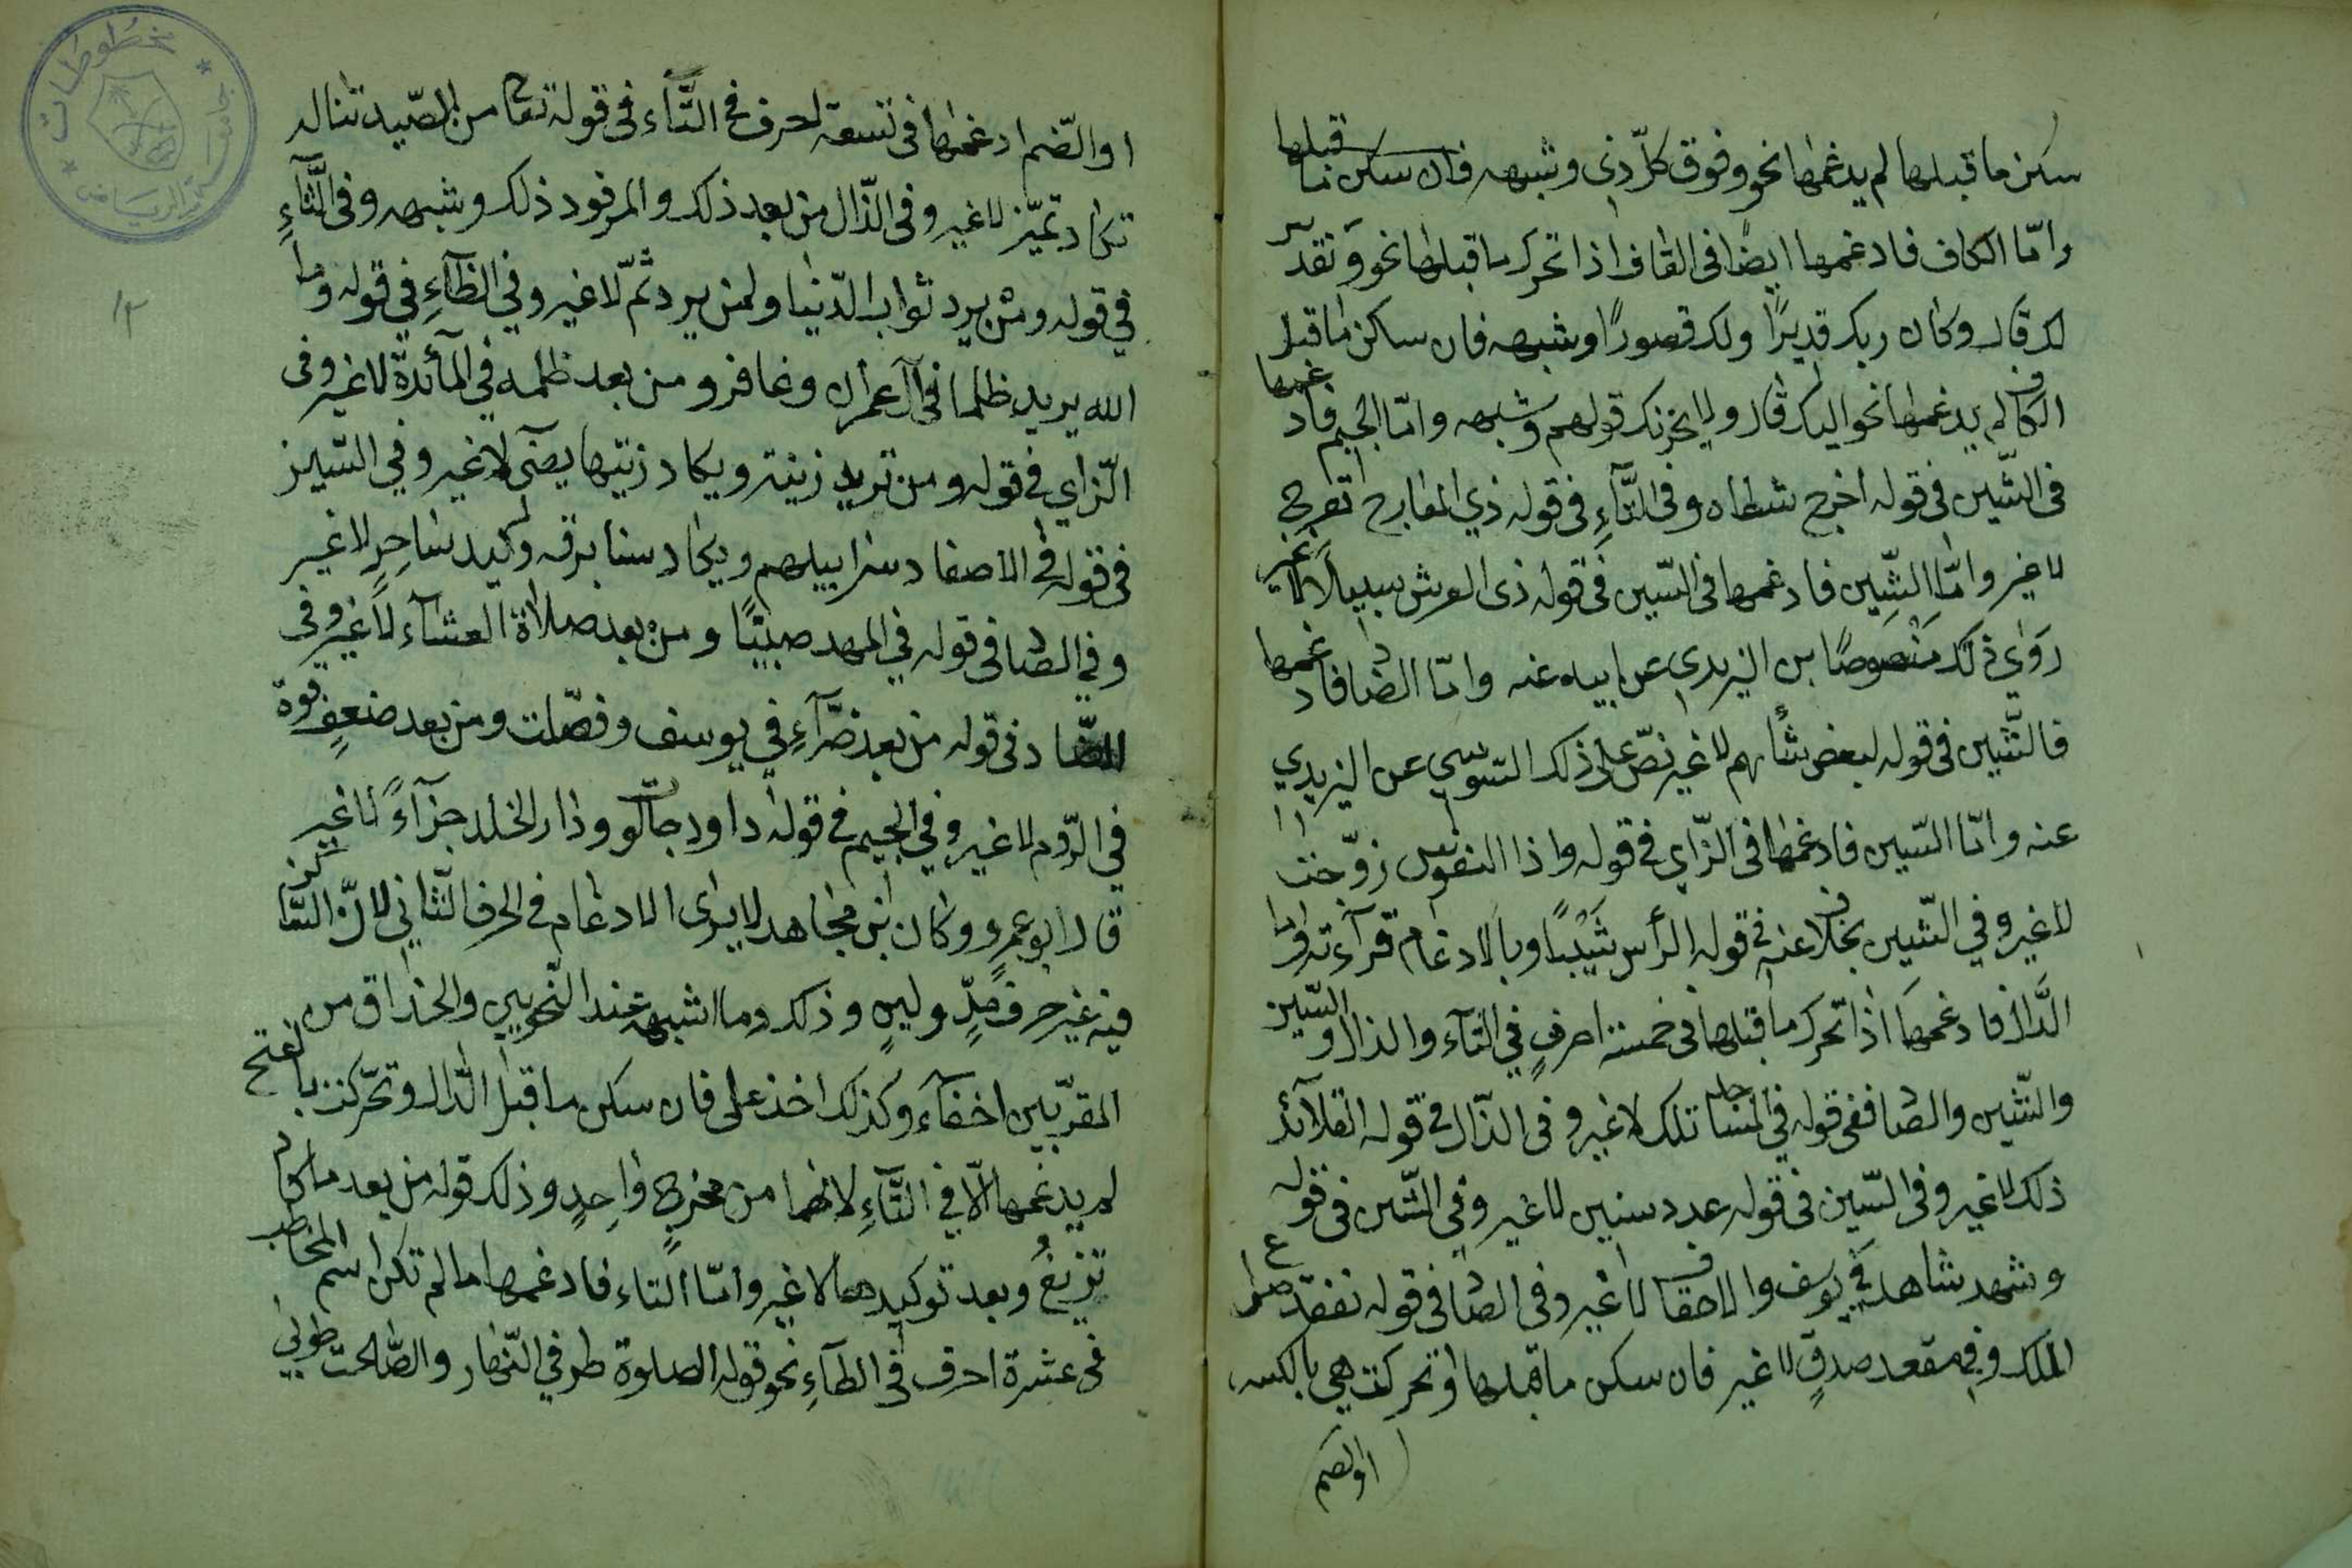 سكن ما قبلها لم يدغمها نحو وفوق كلّ ذي وشبهه فان سكن ما قبلها
وامّا الكاف فادغمها ايضًا في القاف اذا تحرك ما قبلها نحو ونقدس
لك قال وكان ربك قديرًا ولك قصورًا وشبهه فان ساكن ما قبل
الكاف لم يدغمها نحو اليك قال ولا يحزنك قولهم وشبهه وامّا الجيم فادغمها
في الشّين في قوله اخرج شطاه وفي التّآءِ في قوله ذي المعارج تعرج
لا غير وامّا الشّين فادغمها في السّين في قوله ذي العرش سبيلًا لا غير
رَوٰى ذلك مَنْصوصًا بن اليزيدي عن ابيه عنه وامّا الضاد فادغمها
فالشّين في قوله لبعض شأنهم لا غير نصّ على ذلك السّوسي عن اليزيدي
عنه وامّا السّين فادغمها في الزّاي في قوله واذا النفوس زوّجت
لا غير وفي الشّين بخلاف عنه في قوله الرأس شَيْبًا وبالادغام قرآءته وامّا
الدّال فادغمها اذا تحرك ما قبلها في خمسة احرفٍ في التّآء والذال والسّين
والشّين والصّاد ففي قوله في المساجد تلك لا غير وفي الذّال في قوله القلآئد
ذلك لا غير وفي السّين في قوله عدد سنين لا غير وفي الشّين في قوله
وشهد شاهد في يوسف والاحقاف لا غير وفي الصّاد في قوله نفقد صواع
الملك وفي مقعد صدقٍ لا غير فان سكن ما قبلها وتحركت هي بالكسر
او الضم
او الضّم ادغمها في تسعة احرف في التّآء في قوله تعا من الصّيد تناله
تكاد تميّز لا غير وفي الذّال من بعد ذلك والمرفود ذلك وشبهه وفي الثّآءِ
في قوله ومن يرد ثواب الدّنيا ولمن يريد ثمّ لا غير وفي الظّآءِ في قوله وما
الله يريد ظلما في آل عمران وغافر ومن بعد ظلمه في المآئدة لا غير وفي
الزّاي في قوله ومن تريد زينة ويكاد زيتها يضئ لا غير وفي السّين
في قوله في الاصفاد سرابيلهم ويكاد سنا برقه وكيد ساحرٍ لا غير
وفي الصّاد في قوله في المهد صبيًّا ومن بعد صلاة العشآء لا غير وفي
الضّاد في قوله من بعد ضرّآءِ في يوسف وفصّلت ومن بعد ضعفٍ قوة
في الرّوم لا غير وفي الجيم في قوله داود جالوت ودار الخلد جزآءً لا غير
قال ابو عمرو وكان ابن مجاهد لا يرى الادغام في الحرف الثّاني لانّ السّاكن
فيه غير حرف مدٍّ ولينٍ وذلك وما اشبهه عند النّحويين والحذاق من
المقرّيين اخفآء وكذلك اخذ على فان سكن ما قبل الدّال وتحرّكت بالفتح
لم يدغمها الّا في التّآءِ لانهما من مخرجٍ واحدٍ وذلك قوله من بعد ما كاد
تزيغُ وبعد توكيدها لا غير وامّا التاء فادغمها ما لم تكن اسم المخاطب
في عشرة احرف في الطآءِ نحو قوله الصلوة طرفي النّهار والصّالحت طوبى